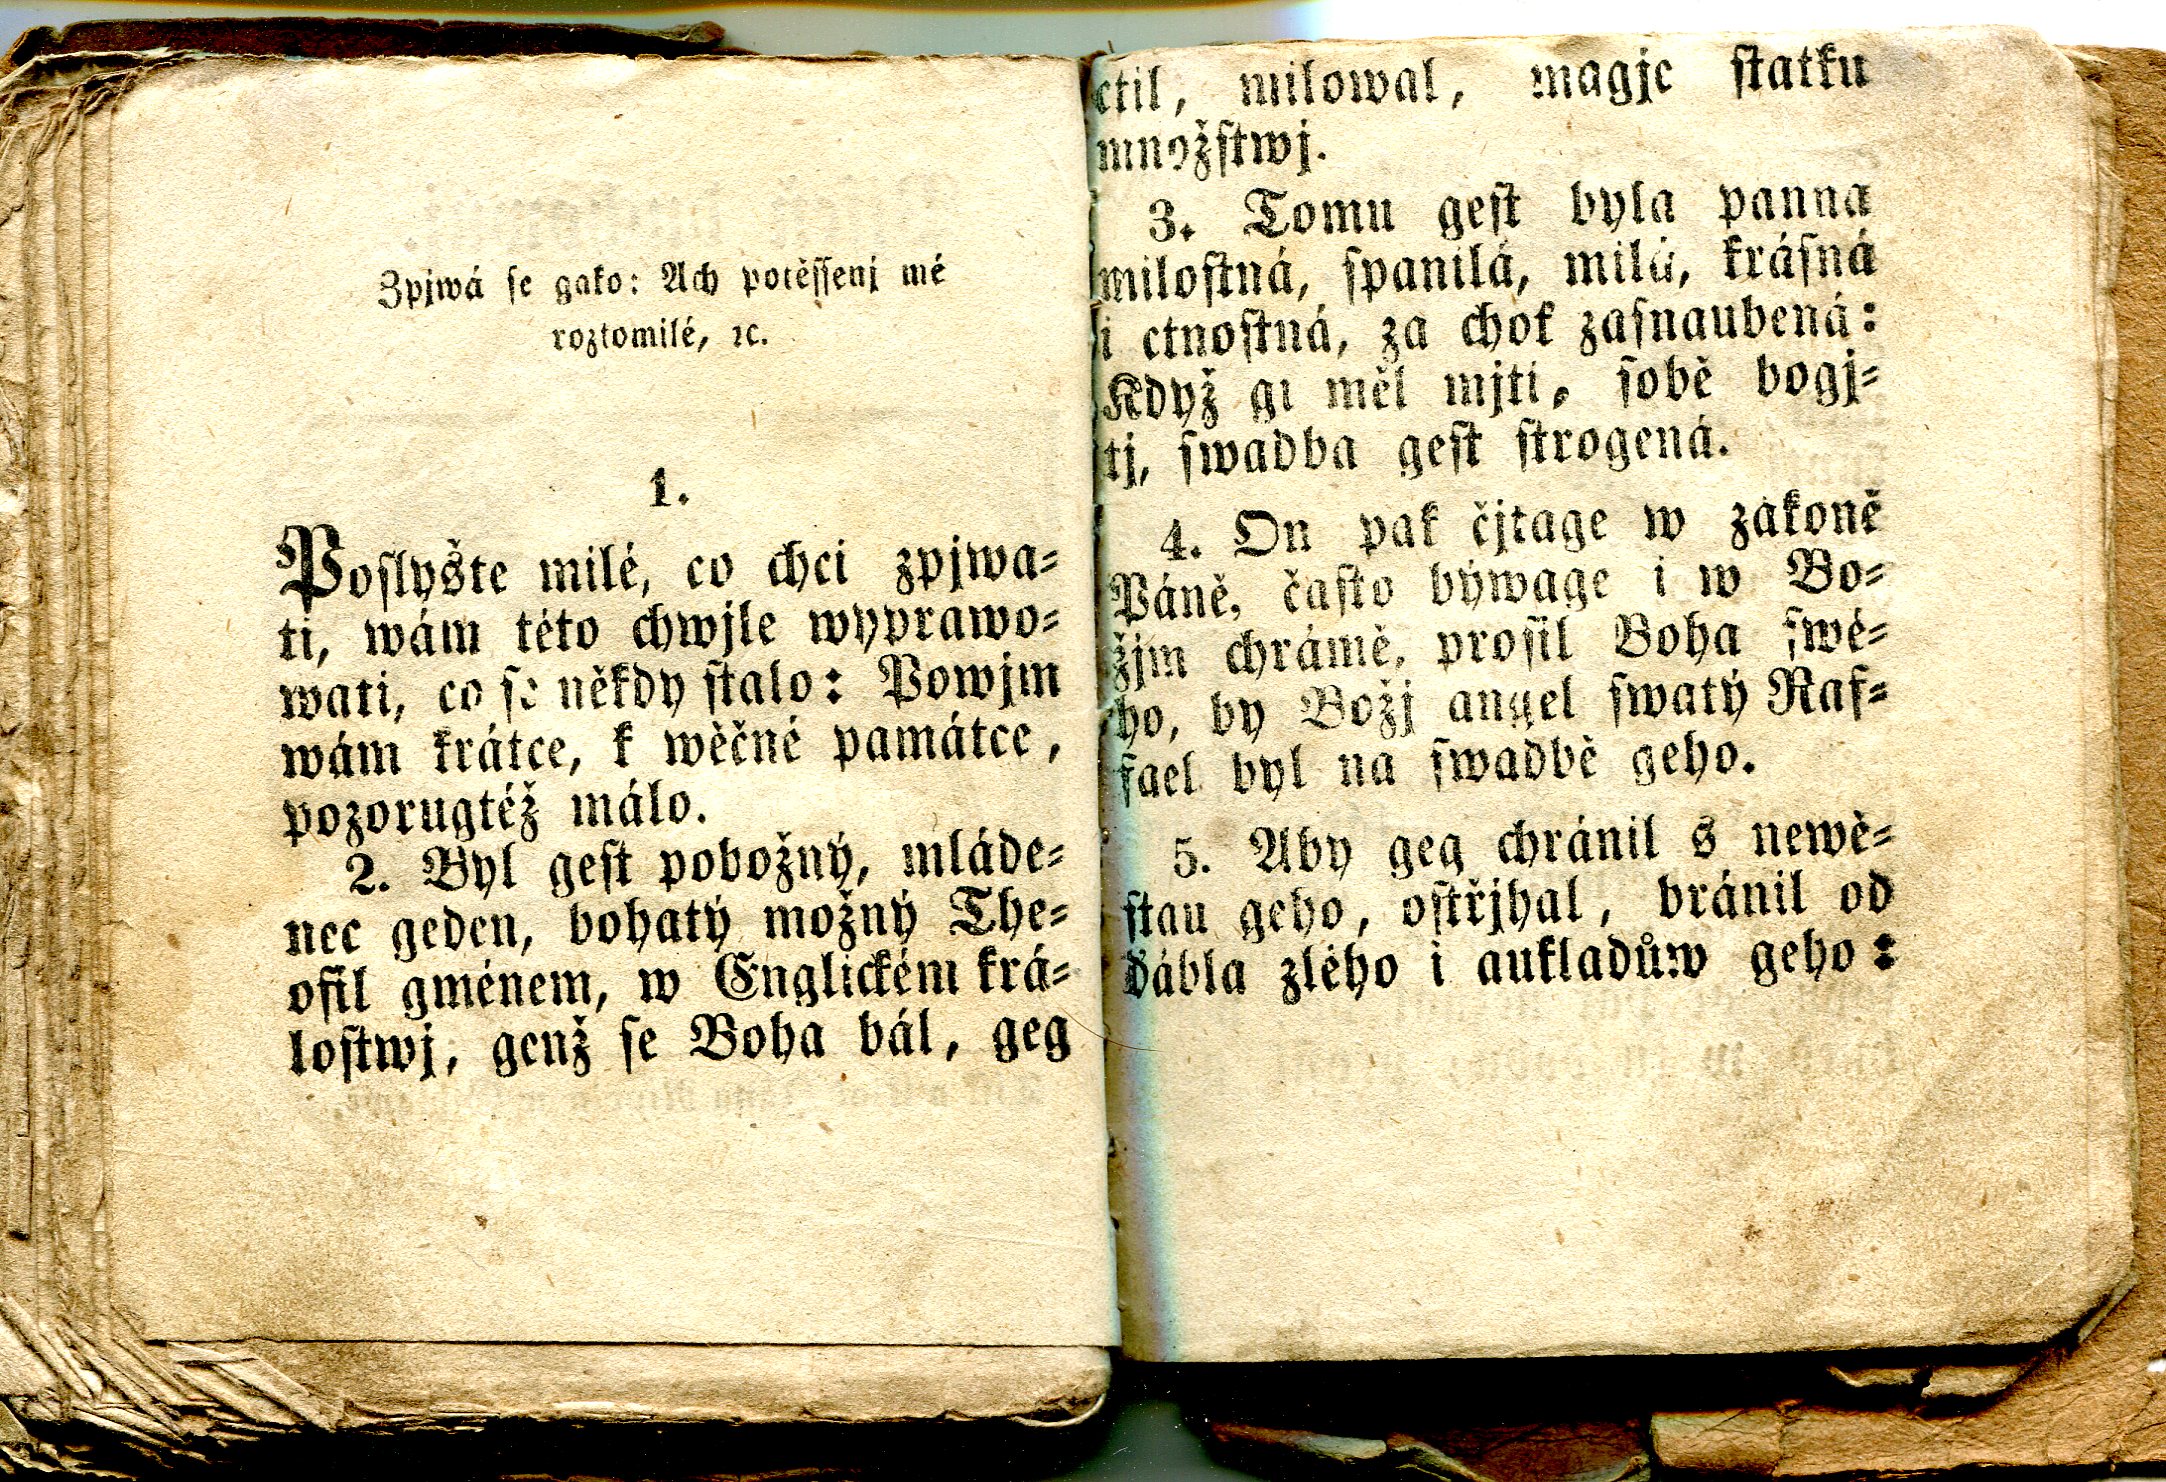 Zpjwá se gako: Ach potěssenj mé
roztomilé, ꝛc.
1.
Poslyšte milé, co chci zpjwa=
ti, wám této chwjle wyprawo=
wati, co se někdy stalo: Powjm
wám krátce, k wěčné památce,
pozorugtéž málo.
2. Byl gest pobožný, mláde=
nec geden, bohatý možný The=
ofil gménem, w Englickém krá=
lostwj, genž se Boha bál, geg
ctil, milowal, magje statku
množstwj.
3. Tomu gest byla panna
milostná, spanilá, milá, krásná
i ctnostná, za chot zasnaubená:
Když gi měl mjti, sobě bogj=
tj, swadba gest strogená.
4. On pak čjtage w zákoně
Páně, často býwage i w Bo=
žjm chrámě, prosil Boha swé=
ho, by Božj angel swatý Raf=
fael byl na swadbě geho.
5. Aby geg chránil s newě=
stau geho, ostřjhal, bránil od
ďábla zlého i aukladůw geho: